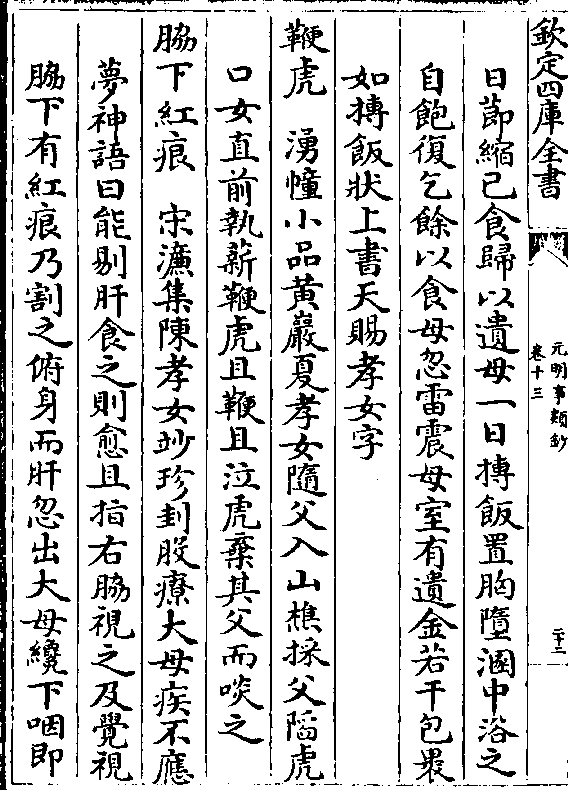 欽定四庫全書
元明事類鈔
卷十三
二十二
日節縮己食歸以遺母一日摶飯置胸墮溷中浴之
自飽復乞餘以食母忽雷震母室有遺金若干包裹
如摶飯狀上書天賜孝女字
鞭虎　湧幢小品黃巖夏孝女隨父入山樵採父陷虎
口女直前執薪鞭虎且鞭且泣虎棄其父而啖之
脇下紅痕　宋濂集陳孝女妙珍刲股療大母疾不應
夢神語曰能剔肝食之則愈且指右脇視之及覺視
脇下有紅痕乃割之俯身而肝忽出大母纔下咽即